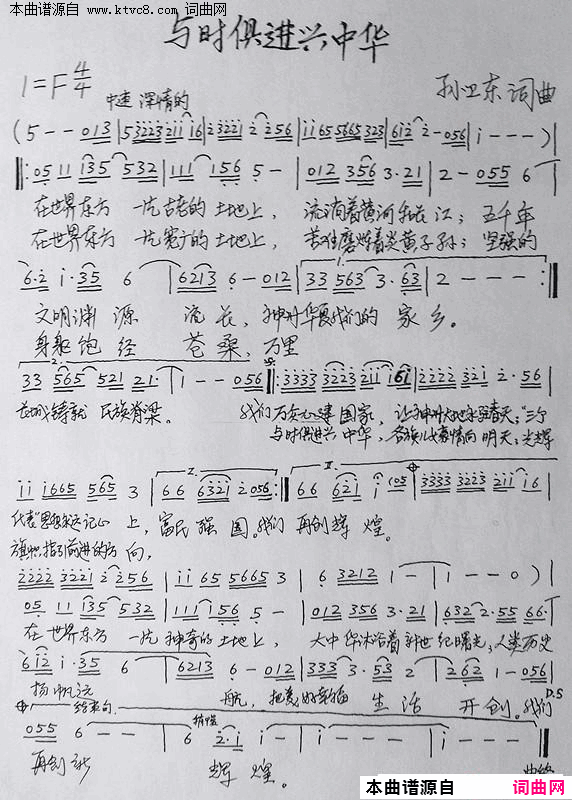 本曲谱源自
www.ktvc8.com 词曲网
与时俱进兴中华
1=F 4/4
中速 深情的
孙卫东词曲
(5 - - 013 | 5 3223 211 16 | 2 3221 2 256 | 11 65 5665 323 | 612 2 - 056 | 1 - - - ) |
05 11 135 532 | 111 156 5 - | 012 356 3·21 | 2 - 055 6
在世界东方 一片古老的土地上, 流淌着黄河和长江; 五千年
在世界东方 一片宽广的土地上, 苦难磨炼着炎黄子孙; 坚强的
6·2 1·35 6 | 6213 6 - 012 | 33 563 3·63 | 2 - - - :|
文明渊源 流长, 神州华夏我们的家乡。
身躯饱经 苍桑, 万里
2.
33 565 521 21· | 1 - - 056 | 3333 3223 211 161 | 2222 321 2·56 |
长城铸就 民族脊梁。 我们万众一心建国家, 让神州大地永远春天; "三个
与时俱进兴中华, 各族儿女豪情向明天; 光辉
11 1665 565 3 | 66 6321 2 056 | 66 621 1 (05 | 3333 3223 211 16 |
代表"思想永远记心上, 富民强国。我们 再创辉煌。
旗帜指引前进的方向,
2222 3221 2 256 | 11 65 5665 3 | 6 3212 1 - | 1 - - 0 ) |
05 11 135 532 | 111 156 5 - | 012 356 3·21 | 632 2·55 66·
在世界东方 一片神奇的土地上, 大中华沐浴着新世纪曙光, 人类历史
612 1·35 6 | 6213 6 - 012 | 333 3·53 2 | 2 262 1 - 056
扬帆远 航, 把美好幸福 生活 开创。我们
D.S
结束句.
055 6 - - | 6 2·1 1 - | 1 - - - | 1 - - - ||
稍慢
再创新 辉煌。
曲终
本曲谱源自 词曲网